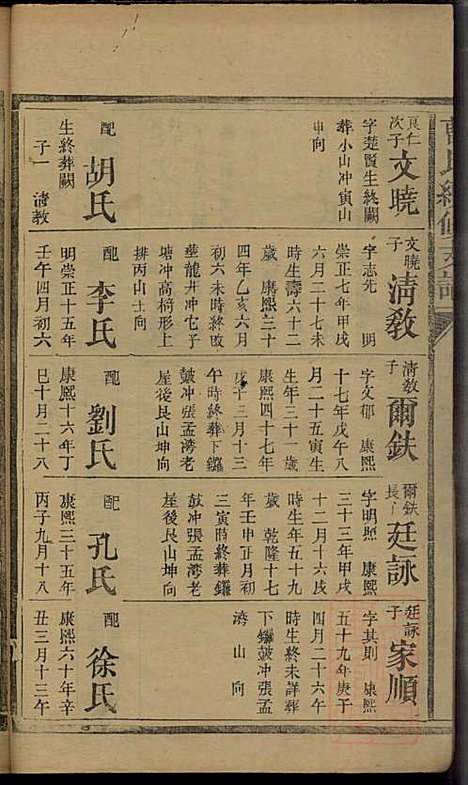 良仁
次子
文曉
字楚賢生終闕
葬小山冲寅山
申向
配
胡氏
生終葬闕
子一 清教
文曉
子
清教
字志先 明
崇正七年甲戌
六月二十七未
時生壽六十二
歲 康熙三十
四年乙亥六月
初六未時終政
葬龍井冲屯子
塘冲高椅形上
排丙山壬向
配
李氏
明崇正十五年
壬午四月初六
清教
子
爾鈇
字文郁 康熙
十七年戊午八
月二十五寅生
生年三十一歲
康熙四十七年
戊子三月十三
午時終葬下鑼
鼓冲張孟湾老
屋後艮山坤向
配
劉氏
康熙十六年丁
巳十月二十八
爾鈇
長子
廷詠
字明熈 康熙
三十三年甲戌
十二月十六戌
時生年五十九
歲 乾隆十七
年壬申正月初
三寅時終葬鑼
鼓冲張孟湾老
屋後艮山坤向
配
孔氏
康熙三十五年
丙子九月十八
廷詠
子
家順
字其則 康熙
五十九年庚子
四月二十六午
時生終未詳葬
下鑼鼓冲張孟
湾 山 向
配
徐氏
康熙六十年辛
丑三月十三午